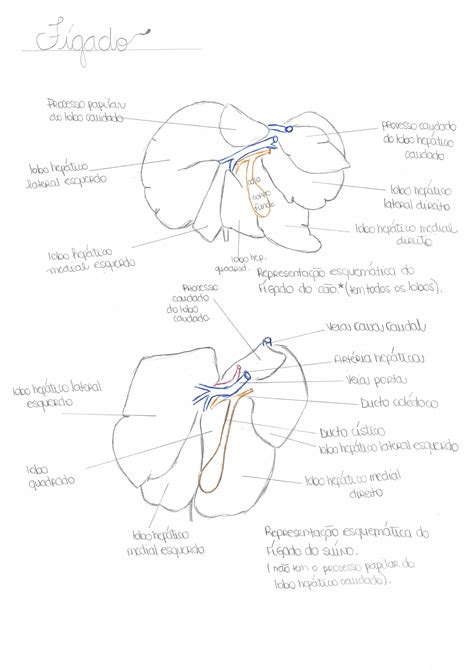 Fígado
Processo papilar
do lobo caudado
lobo hepático
lateral esquerdo
lobo hepático
medial esquerdo
colo
corpo
fundo
lobo hep.
quadrad.
Processo caudado
do lobo hepático
caudado
lobo hepático
lateral direito
lobo hepático medial
direito
Representação esquemática do
Fígado do cão.*(tem todos os lobos).
Processo
caudado
do lobo
caudado
lobo hepático lateral
esquerdo
lobo
quadrado
lobo hepático
medial esquerdo
Veia cava caudal
Artéria hepática
Veia porta
Ducto colédoco
Ducto cístico
lobo hepático lateral esquerdo
lobo hepático medial
direito
Representação esquemática do
Fígado do suíno.
(não tem o processo papilar do
lobo hepático caudado).